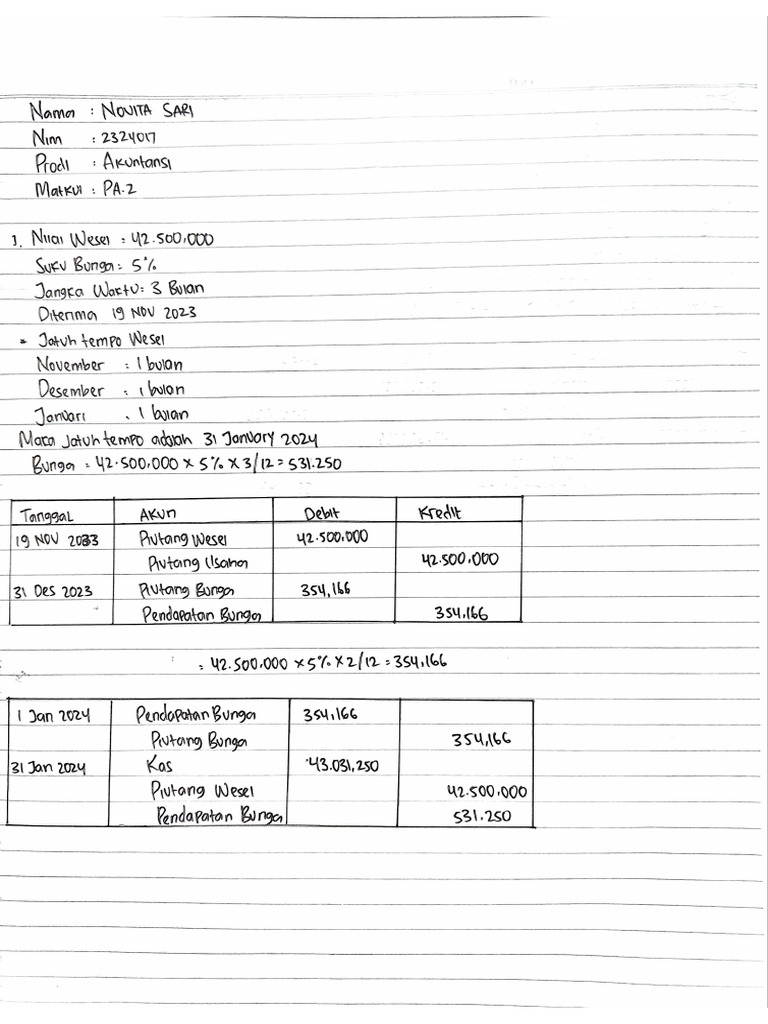 Nama : NOVITA SARI
Nim : 2324017
Prodi : Akuntansi
Matkul : PA.2
1. Nilai Wesel : 42.500.000
Suku Bunga : 5%
Jangka Waktu : 3 Bulan
Diterima 19 NOV 2023
* Jatuh tempo Wesel
November : 1 bulan
Desember : 1 bulan
Januari . 1 bulan
Maka Jatuh tempo adalah 31 January 2024
Bunga = 42.500.000 x 5% x 3/12 = 531.250
Tanggal Akun Debit Kredit
19 NOV 2023 Piutang Wesel 42.500.000
Piutang Usaha 42.500.000
31 Des 2023 Piutang Bunga 354,166
Pendapatan Bunga 354,166
= 42.500.000 x 5% x 2/12 = 354,166
1 Jan 2024 Pendapatan Bunga 354,166
Piutang Bunga 354,166
31 Jan 2024 Kas 43.031,250
Piutang Wesel 42.500.000
Pendapatan Bunga 531.250